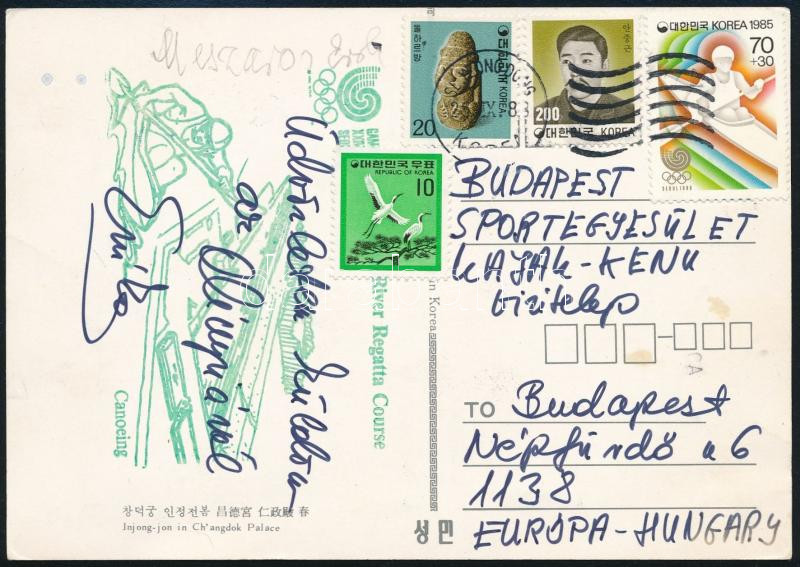 Meszaros Erik
돌하르방
대한민국
KOREA
20
안중근
200
대한민국 KOREA
대한민국 KOREA 1985
70
+30
SEOUL 1988
대한민국 우표
REPUBLIC OF KOREA
10
BUDAPEST
SPORTEGYESÜLET
KAJAK-KENU
vizitelep
TO Budapest
Népfürdő u 6
1138
EURÓPA-HUNGARY
Üdvözletem küldöm
az Olimpiáról
River Regatta Course
Canoeing
in Korea
창덕궁 인정전봄 昌德宮 仁政殿 春
Injong-jon in Ch'angdok Palace
성 민
CA